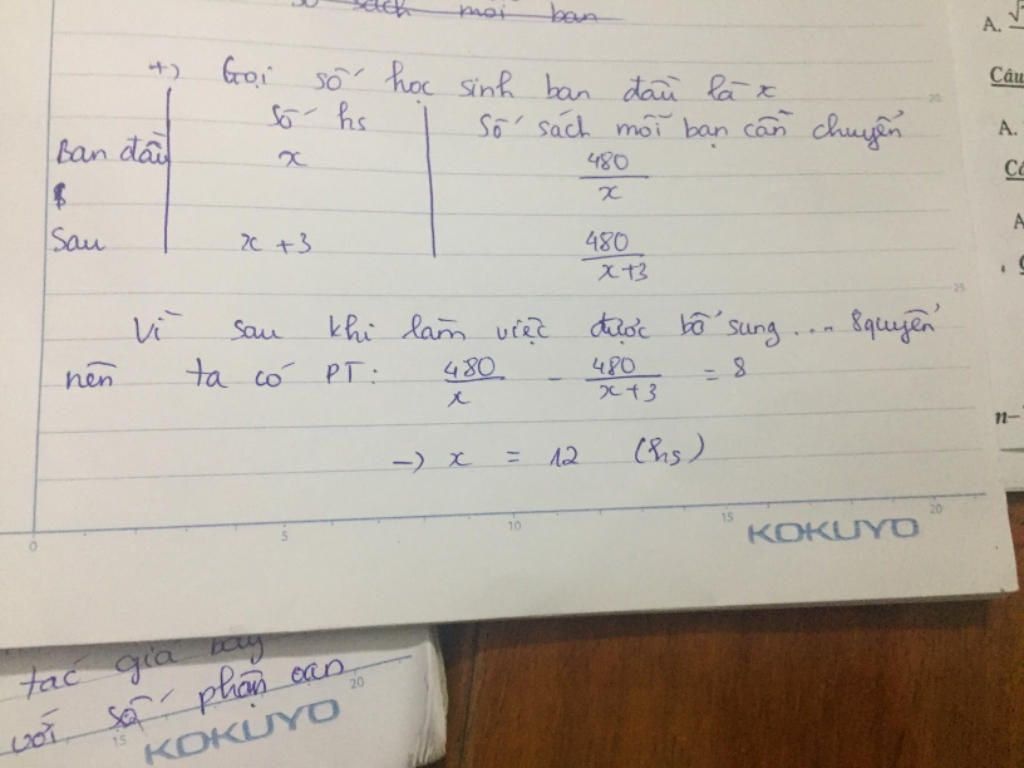 sách mỗi bạn
+) Gọi số học sinh ban đầu là x
Số hs | Số sách mỗi bạn cần chuyển
Ban đầu | x | 480/x
Sau | x + 3 | 480/x+3
Vì sau khi làm việc được bổ sung ... 8 quyển
nên ta có PT: 480/x - 480/x+3 = 8
-> x = 12 (hs)
0 5 10 15 20
KOKUYO
tác giả bày
với số phận oan
15 KOKUYO 20
A. √
Câu
A.
A
n-
20
25